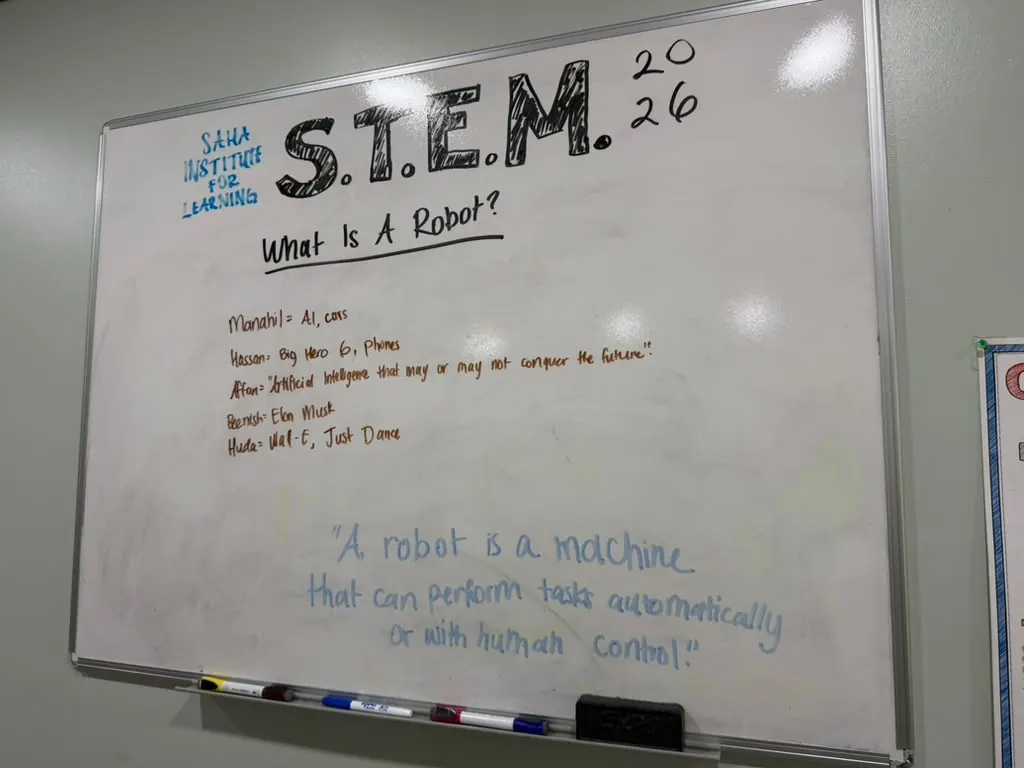 SAHA
INSTITUTE
FOR
LEARNING
S.T.E.M.
20
26
What Is A Robot?
Manahil= AI, cars
Hassan= Big Hero 6, Phones
Affan= "Artificial Intelligence that may or may not conquer the future".
Beenish= Elon Musk
Huda= Wal-E, Just Dance
"A robot is a machine
that can perform tasks automatically
or with human control."